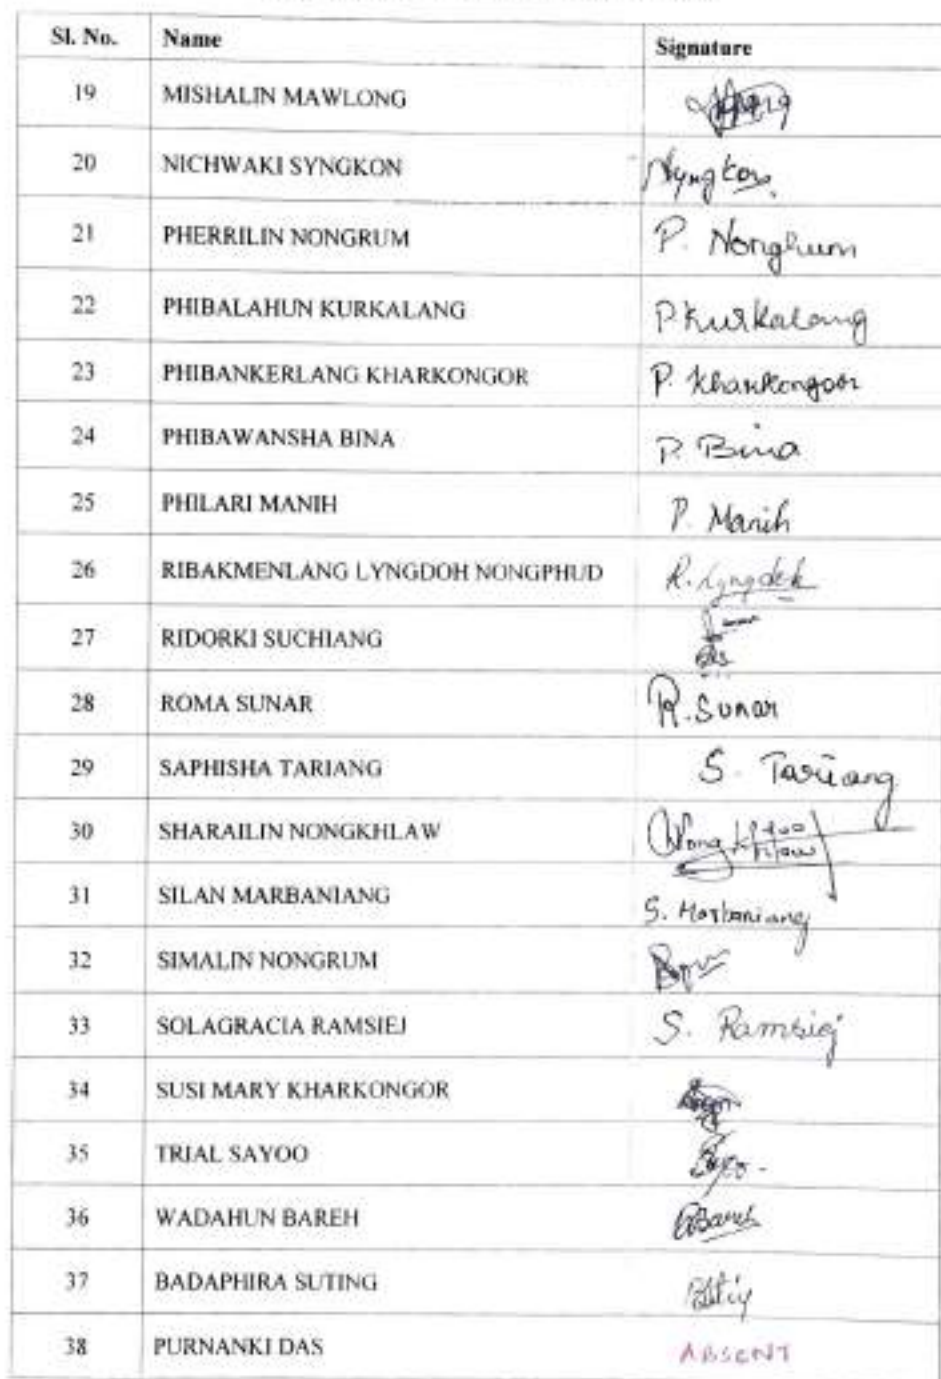 Sl. No. Name Signature
19 MISHALIN MAWLONG
20 NICHWAKI SYNGKON Nyngkon
21 PHERRILIN NONGRUM P. Nongrum
22 PHIBALAHUN KURKALANG P Kurkalang
23 PHIBANKERLANG KHARKONGOR P. Kharkongor
24 PHIBAWANSHA BINA P. Bina
25 PHILARI MANIH P. Manih
26 RIBAKMENLANG LYNGDOH NONGPHUD R. Lyngdoh
27 RIDORKI SUCHIANG
28 ROMA SUNAR R. Sunar
29 SAPHISHA TARIANG S. Tariang
30 SHARAILIN NONGKHLAW Nongkhlaw
31 SILAN MARBANIANG S. Marbaniang
32 SIMALIN NONGRUM
33 SOLAGRACIA RAMSIEJ S. Ramsiej
34 SUSI MARY KHARKONGOR
35 TRIAL SAYOO
36 WADAHUN BAREH Bareh
37 BADAPHIRA SUTING
38 PURNANKI DAS ABSENT